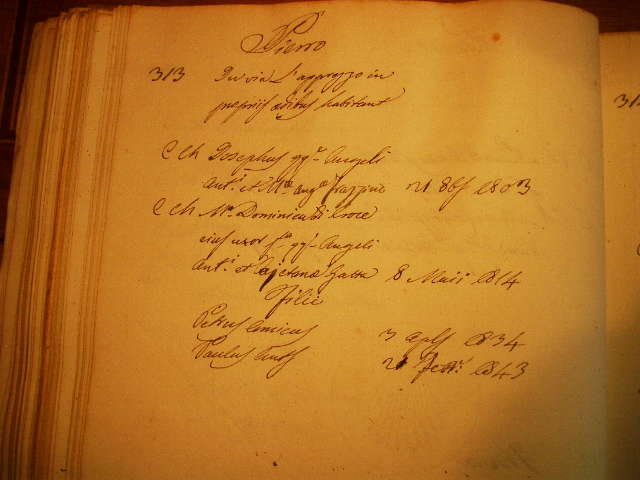 Pierro
313 In via L'appozzo in
propriis ædibus habitant
C Ch Josephus qq.m Angeli
Ant.i et M.æ Ang.æ Frappino 21 8bs 1803
C Ch M.a Dominica Di Croce
eius uxor f.a qq.m Angeli
Ant.i et Cajetanæ Gatta 8 Maii 1814
Filii
Petrus Amicus 3 Aplis 1834
Paulus 21 1843
313